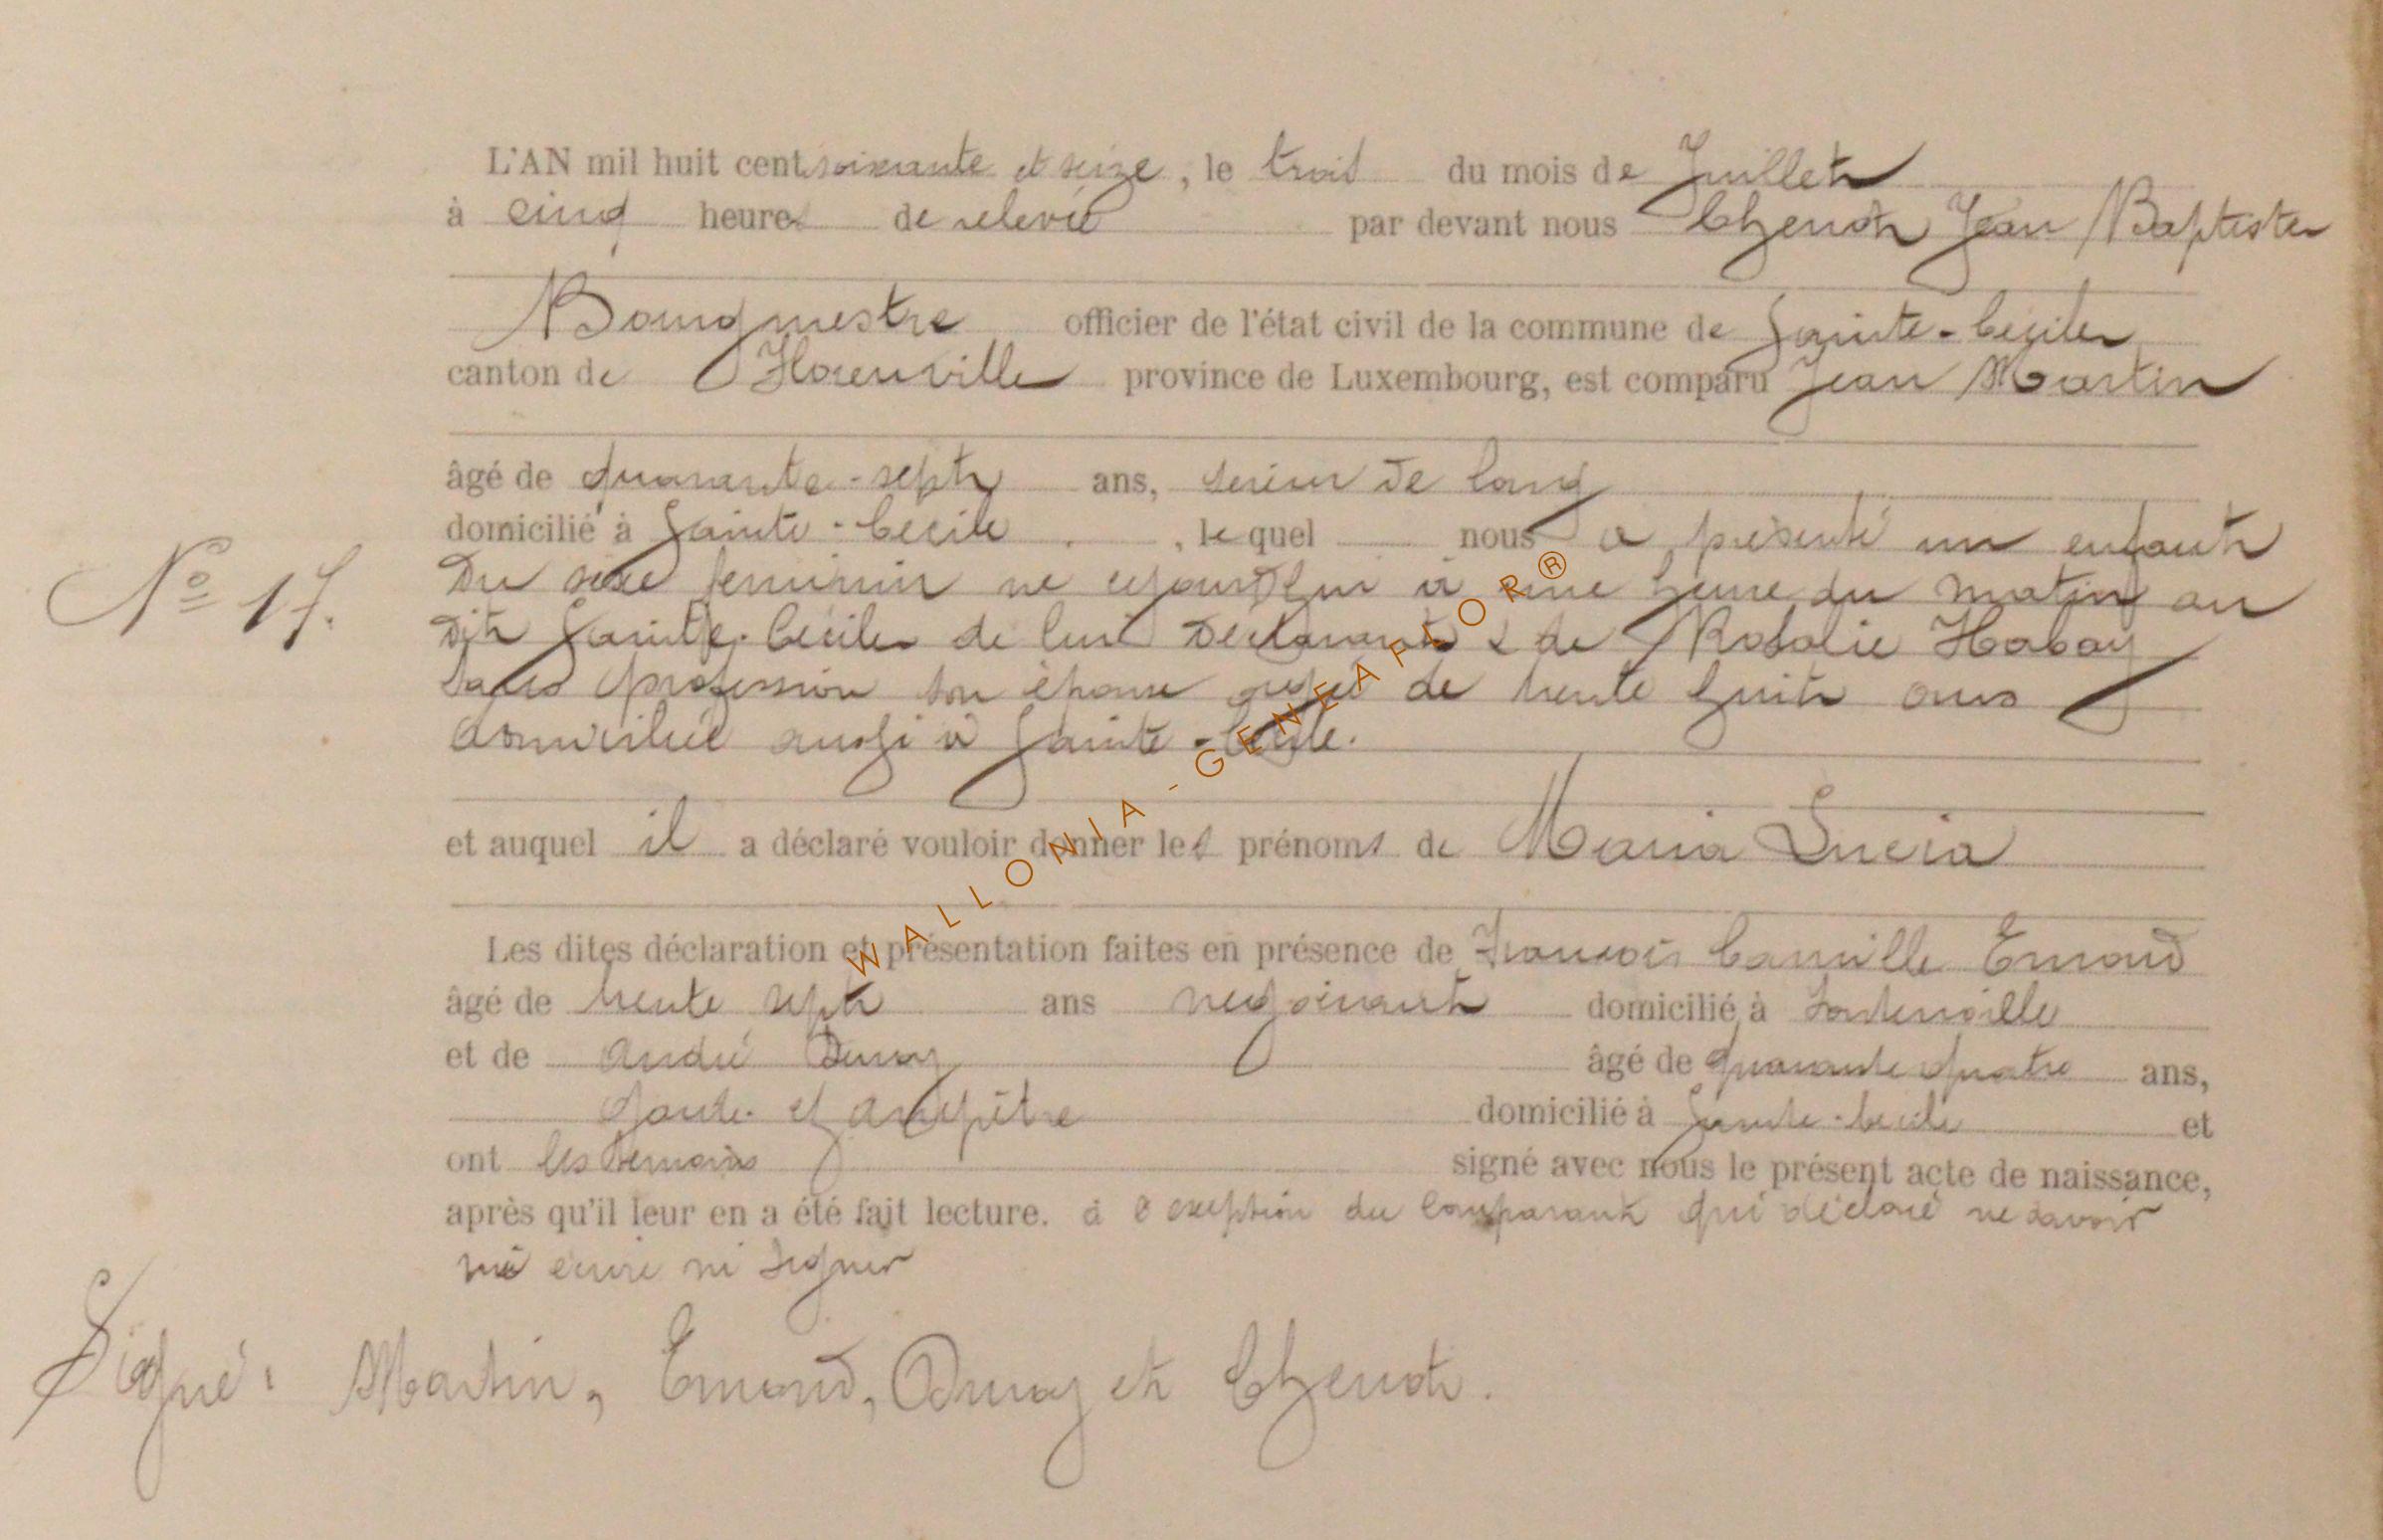 L'AN mil huit cent soixante et seize, le trois du mois de Juillet
à cinq heures de relevée par devant nous Chenot Jean Baptiste
Bourgmestre officier de l'état civil de la commune de Sainte-Cecile
canton de Florenville province de Luxembourg, est comparu Jean Martin
âgé de quarante-sept ans, scieur de long
domicilié à Sainte-Cecile, lequel nous a présenté un enfant
Du sexe feminin né cejourd'hui à une heure du matin au
dit Sainte-Cécile de lui Déclarant & de Rosalie Habay
sans profession son épouse agée de trente huit ans
domiciliée aussi à Sainte-Cecile.
N° 17.
et auquel il a déclaré vouloir donner les prénoms de Maria Lucia
Les dites déclaration et présentation faites en présence de François Camille Emond
âgé de trente sept ans negociant domicilié à Fontenoille
et de André âgé de quarante quatre ans,
Garde champêtre domicilié à Sainte-Cecile et
ont les temoins signé avec nous le présent acte de naissance,
après qu'il leur en a été fait lecture. à l'exception du comparant qui déclaré ne savoir
ni écrire ni signer
Signé: Martin, Emond, et Chenot.
WALLONIA - GENEAFLOR®